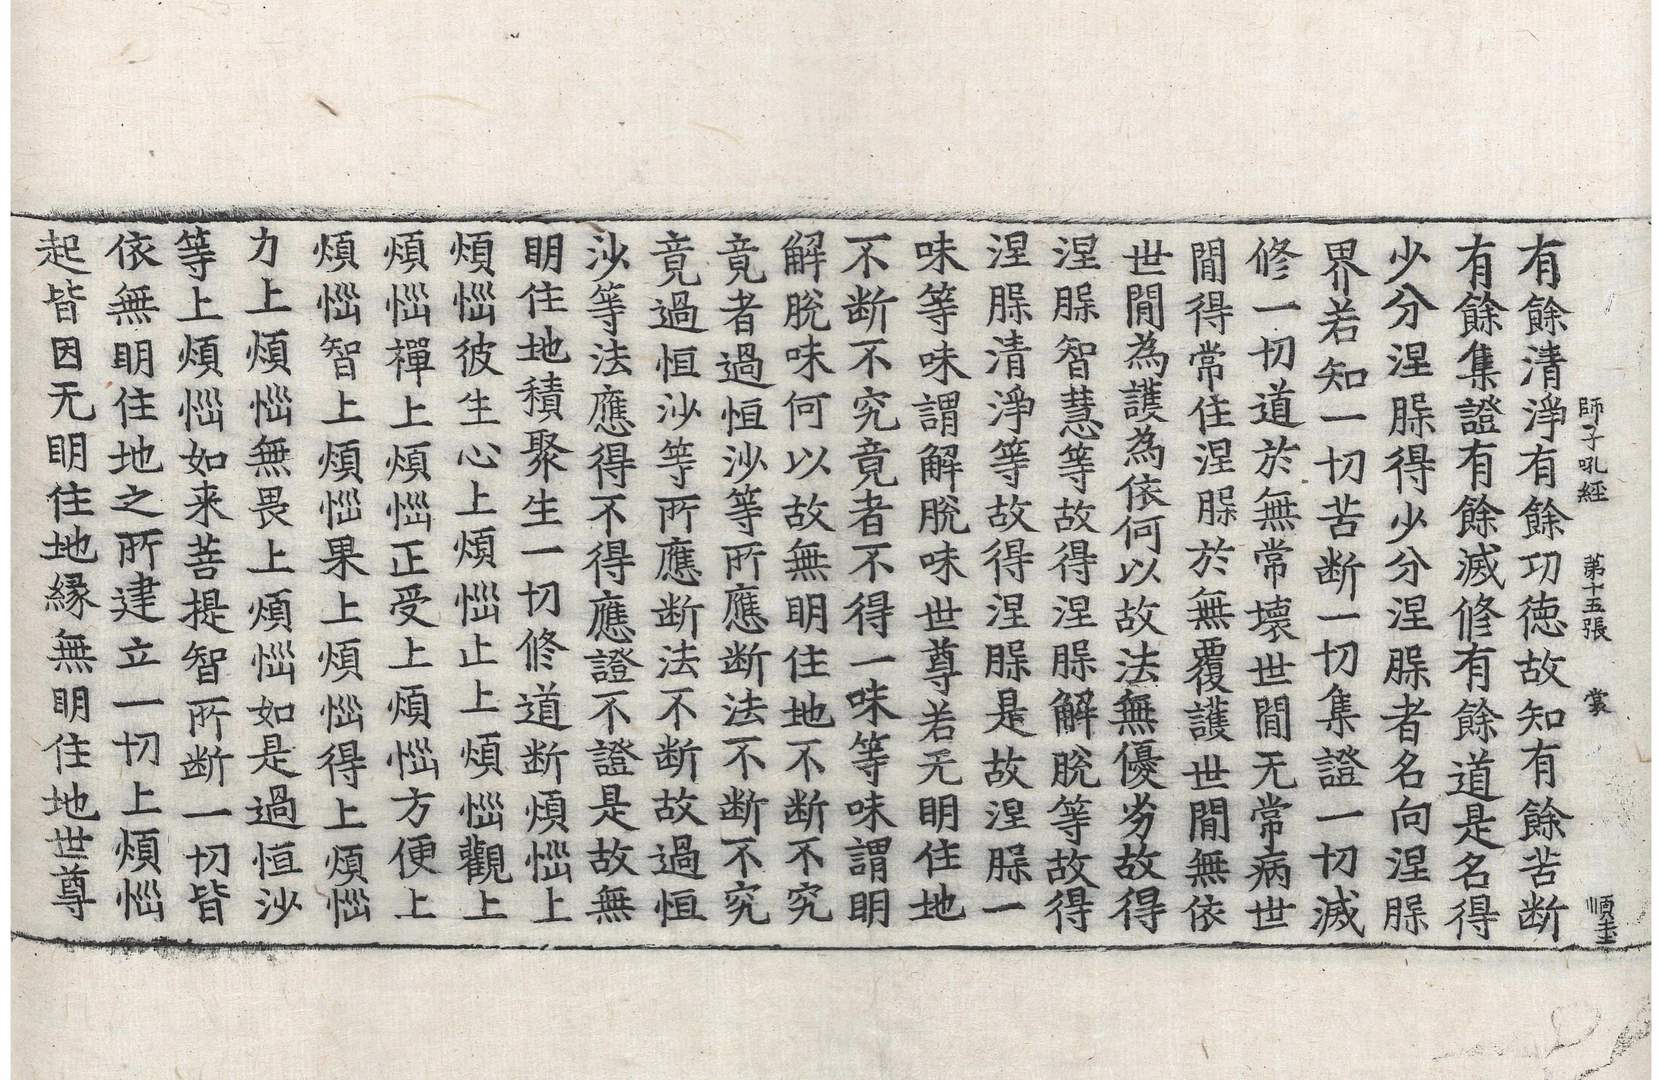 師子吼經　第十五張　裳　順圭
有餘清淨有餘功徳故知有餘苦断
有餘集證有餘滅修有餘道是名得
少分涅槃得少分涅槃者名向涅槃
界若知一切苦断一切集證一切滅
修一切道於無常壊世間无常病世
間得常住涅槃於無覆護世間無依
世間為護為依何以故法無優劣故得
涅槃智慧等故得涅槃解脫等故得
涅槃清淨等故得涅槃是故涅槃一
味等味謂解脫味世尊若无明住地
不断不究竟者不得一味等味謂明
解脫味何以故無明住地不断不究
竟者過恒沙等所應断法不断不究
竟過恒沙等所應断法不断故過恒
沙等法應得不得應證不證是故無
明住地積聚生一切修道断煩惱上
煩惱彼生心上煩惱止上煩惱觀上
煩惱禪上煩惱正受上煩惱方便上
煩惱智上煩惱果上煩惱得上煩惱
力上煩惱無畏上煩惱如是過恒沙
等上煩惱如来菩提智所断一切皆
依無明住地之所建立一切上煩惱
起皆因无明住地縁無明住地世尊